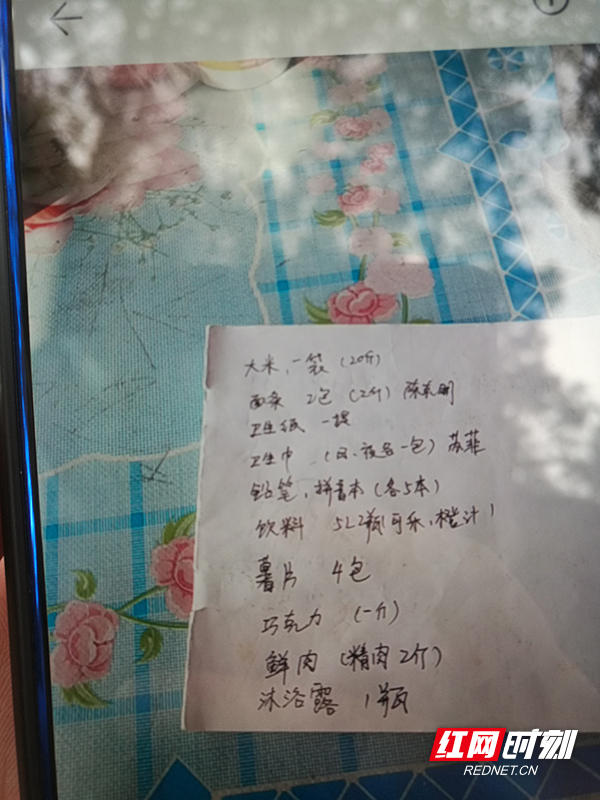 大米，一袋（20斤）
面条 2包（2斤）陈克明
卫生纸 一提
卫生巾（日、夜各一包）苏菲
铅笔，拼音本（各5本）
饮料 5L2瓶（可乐，橙汁）
薯片 4包
巧克力（一斤）
鲜肉（精肉2斤）
沐浴露 1瓶
红网时刻
REDNET.CN